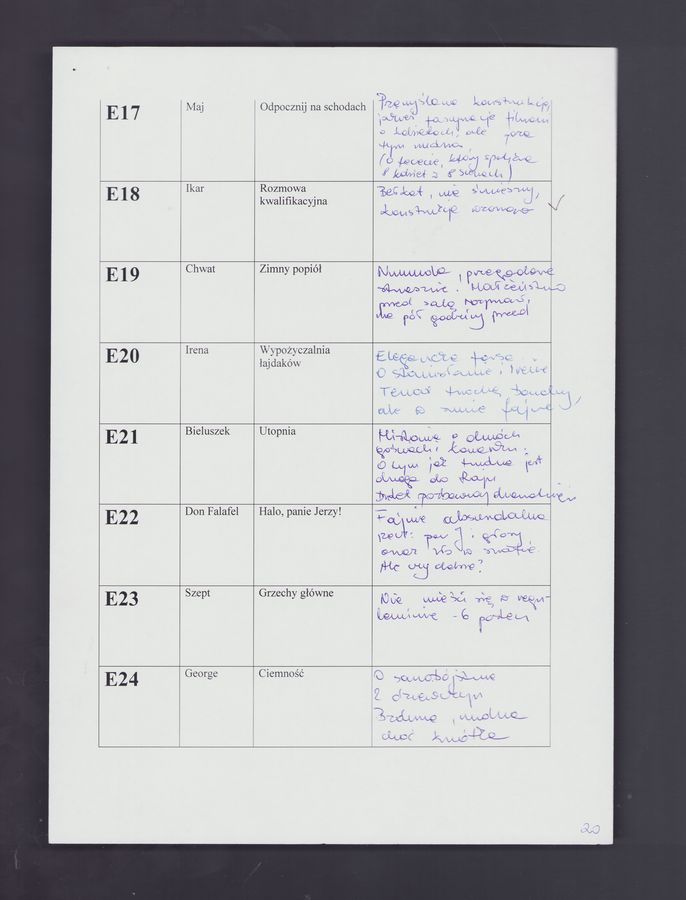 E17 Maj Odpocznij na schodach Przemyślana konstrukcja,
jakaś fascynacja filmami
o kobietach, ale poza
tym nudna
(o facecie, który spotyka
8 kobiet z 8 scenach)
E18 Ikar Rozmowa kwalifikacyjna Bełkot, nie śmieszny,
konstrukcja
E19 Chwat Zimny popiół Nuuuda, przegadane
strasznie. Małżeństwo
przed salą rozpraw,
na pół godziny przed
E20 Irena Wypożyczalnia łajdaków Elegancka farsa
O Stanisławie i Irenie
Temat trochę banalny,
ale w sumie fajne
E21 Bieluszek Utopnia Historia o dwóch
gościach i
O tym jak trudna jest
droga do
Tekst pozbawiony
E22 Don Falafel Halo, panie Jerzy! Fajnie absurdalna
rzecz: pan J i głosy
oraz w szafie.
Ale czy dobre?
E23 Szept Grzechy główne Nie mieści się w regu-
laminie - 6 postaci
E24 George Ciemność O samobójstwie
2 dziewczyn
Brednia, nudna
choć krótka
20